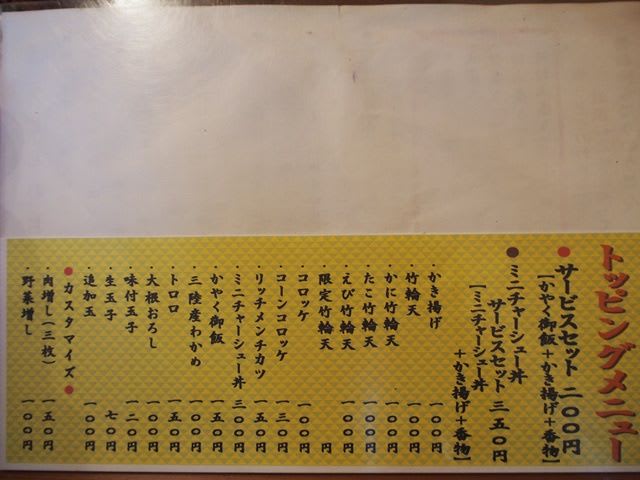 トッピングメニュー
●サービスセット 二〇〇円
[かやく御飯+かき揚げ+香物]
●ミニチャーシュー丼
サービスセット 三五〇円
[ミニチャーシュー丼
+かき揚げ+香物]
・かき揚げ 一〇〇円
・竹輪天 一〇〇円
・かに竹輪天 一〇〇円
・たこ竹輪天 一〇〇円
・えび竹輪天 一〇〇円
・限定竹輪天 円
・コロッケ 一〇〇円
・コーンコロッケ 一三〇円
・リッチメンチカツ 一五〇円
・ミニチャーシュー丼 三〇〇円
・かやく御飯 一五〇円
・三陸産わかめ 一〇〇円
・トロロ 一五〇円
・大根おろし 一〇〇円
・味付玉子 一二〇円
・生玉子 七〇円
・追加玉 一〇〇円
●カスタマイズ●
・肉増し(三枚) 一五〇円
・野菜増し 一〇〇円